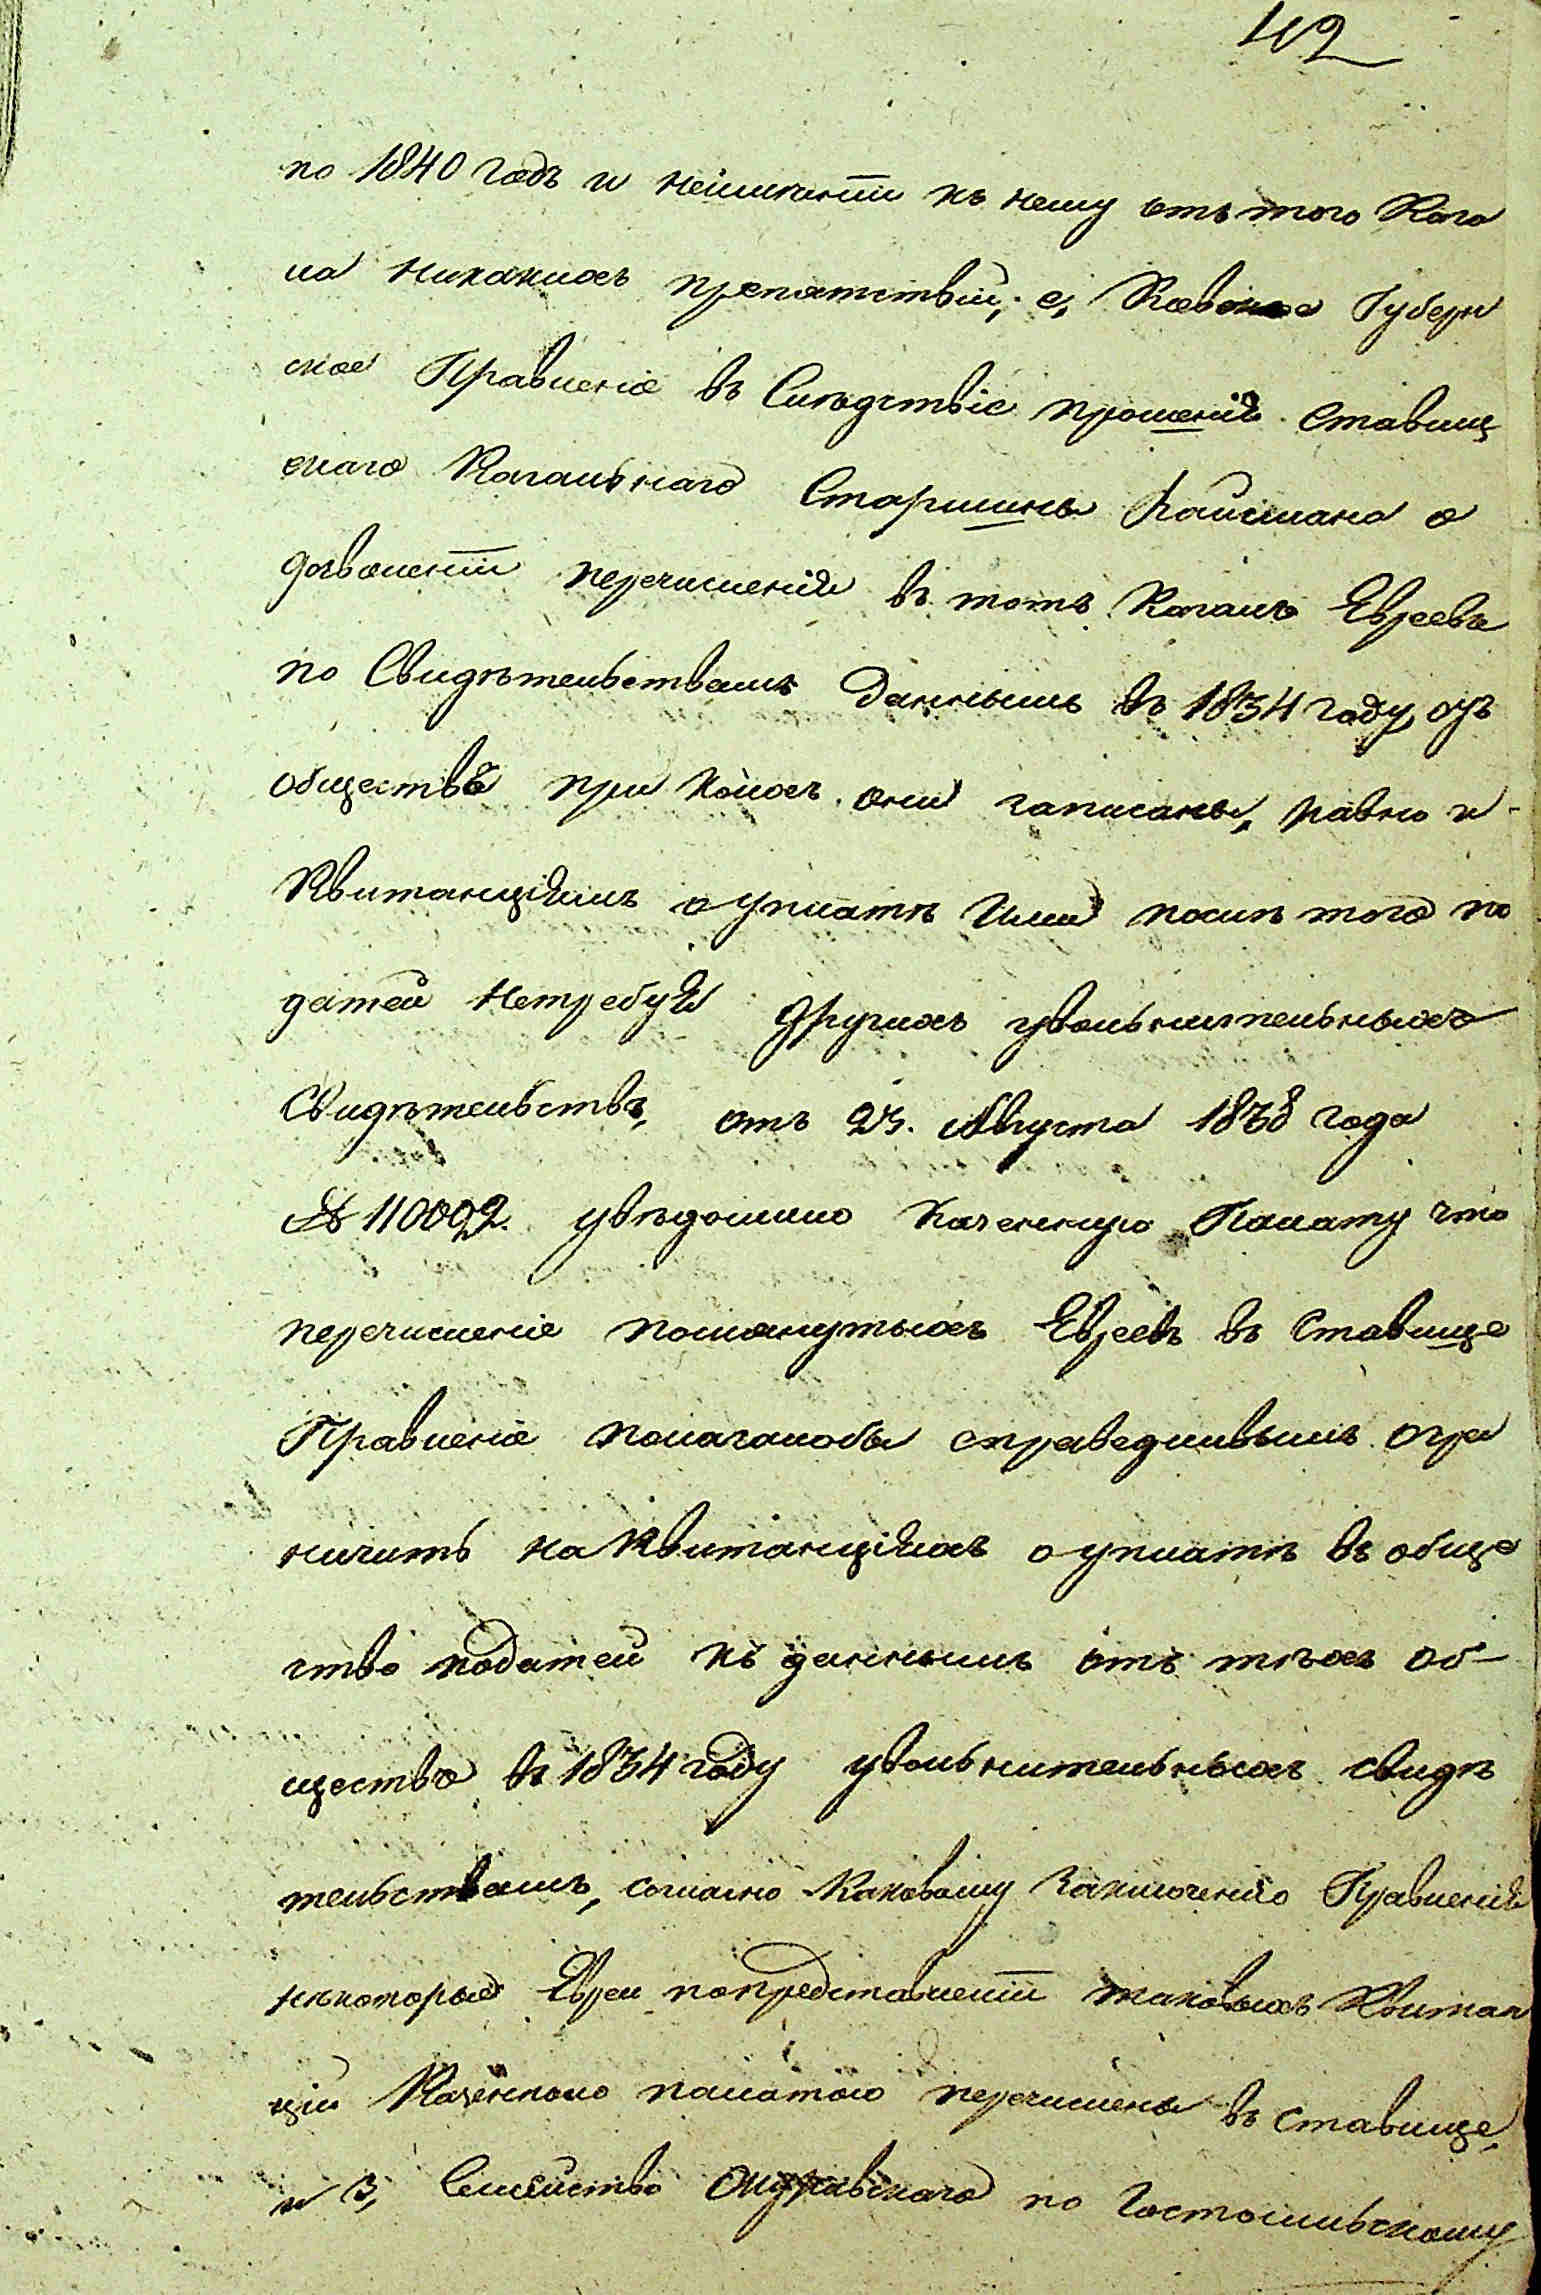 42
по 1840 годъ и неимѣніи къ нему отъ того Кага
ла никакихъ препятствій; е, Кіевское Губерн
ское Правленіе въ Слѣдствіе прошенія Ставищ
скаго Кагальнаго Старшины Райсмана о
дозволеніи перечисленія въ тотъ Кагалъ Евреевъ
по Свидѣтельствамъ даннымъ въ 1834 году, отъ
обществъ при коихъ они записаны, равно и
Квитанціямъ о уплатѣ Ими послѣ того по
датей нетребуя другихъ увольнительныхъ
Свидѣтельствъ, отъ 25. Августа 1838 года
№ 110092. увѣдомило Казенную Палату что
перечисленіе помянутыхъ Евреевъ въ Ставище
Правленіе полагалобы справедливымъ огра
ничить на Квитанціяхъ о уплатѣ въ обще
ство податей къ даннымъ отъ тѣхъ об-
щество въ 1834 году увольнительныхъ свидѣ
тельствамъ, согласно каковому заключенію Правленія
нѣкоторые Евреи попредставленіи таковыхъ Квитан
цій Казенною палатою перечислены въ Ставище,
и 3, Семейство по Гостомльскому